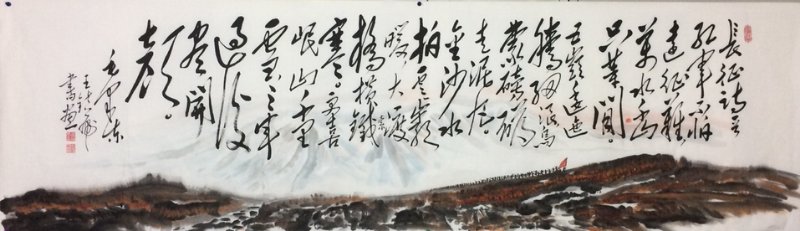 長征詩
紅軍不怕
遠征難
萬水千山
只等閒。
五嶺逶迤
騰細浪烏
蒙磅礴
走泥丸
金沙水
拍雲崖
暖大渡
橋橫鐵索
寒。更喜
岷山千里
雪三軍
過後
盡開
顏。
毛澤東
書畫